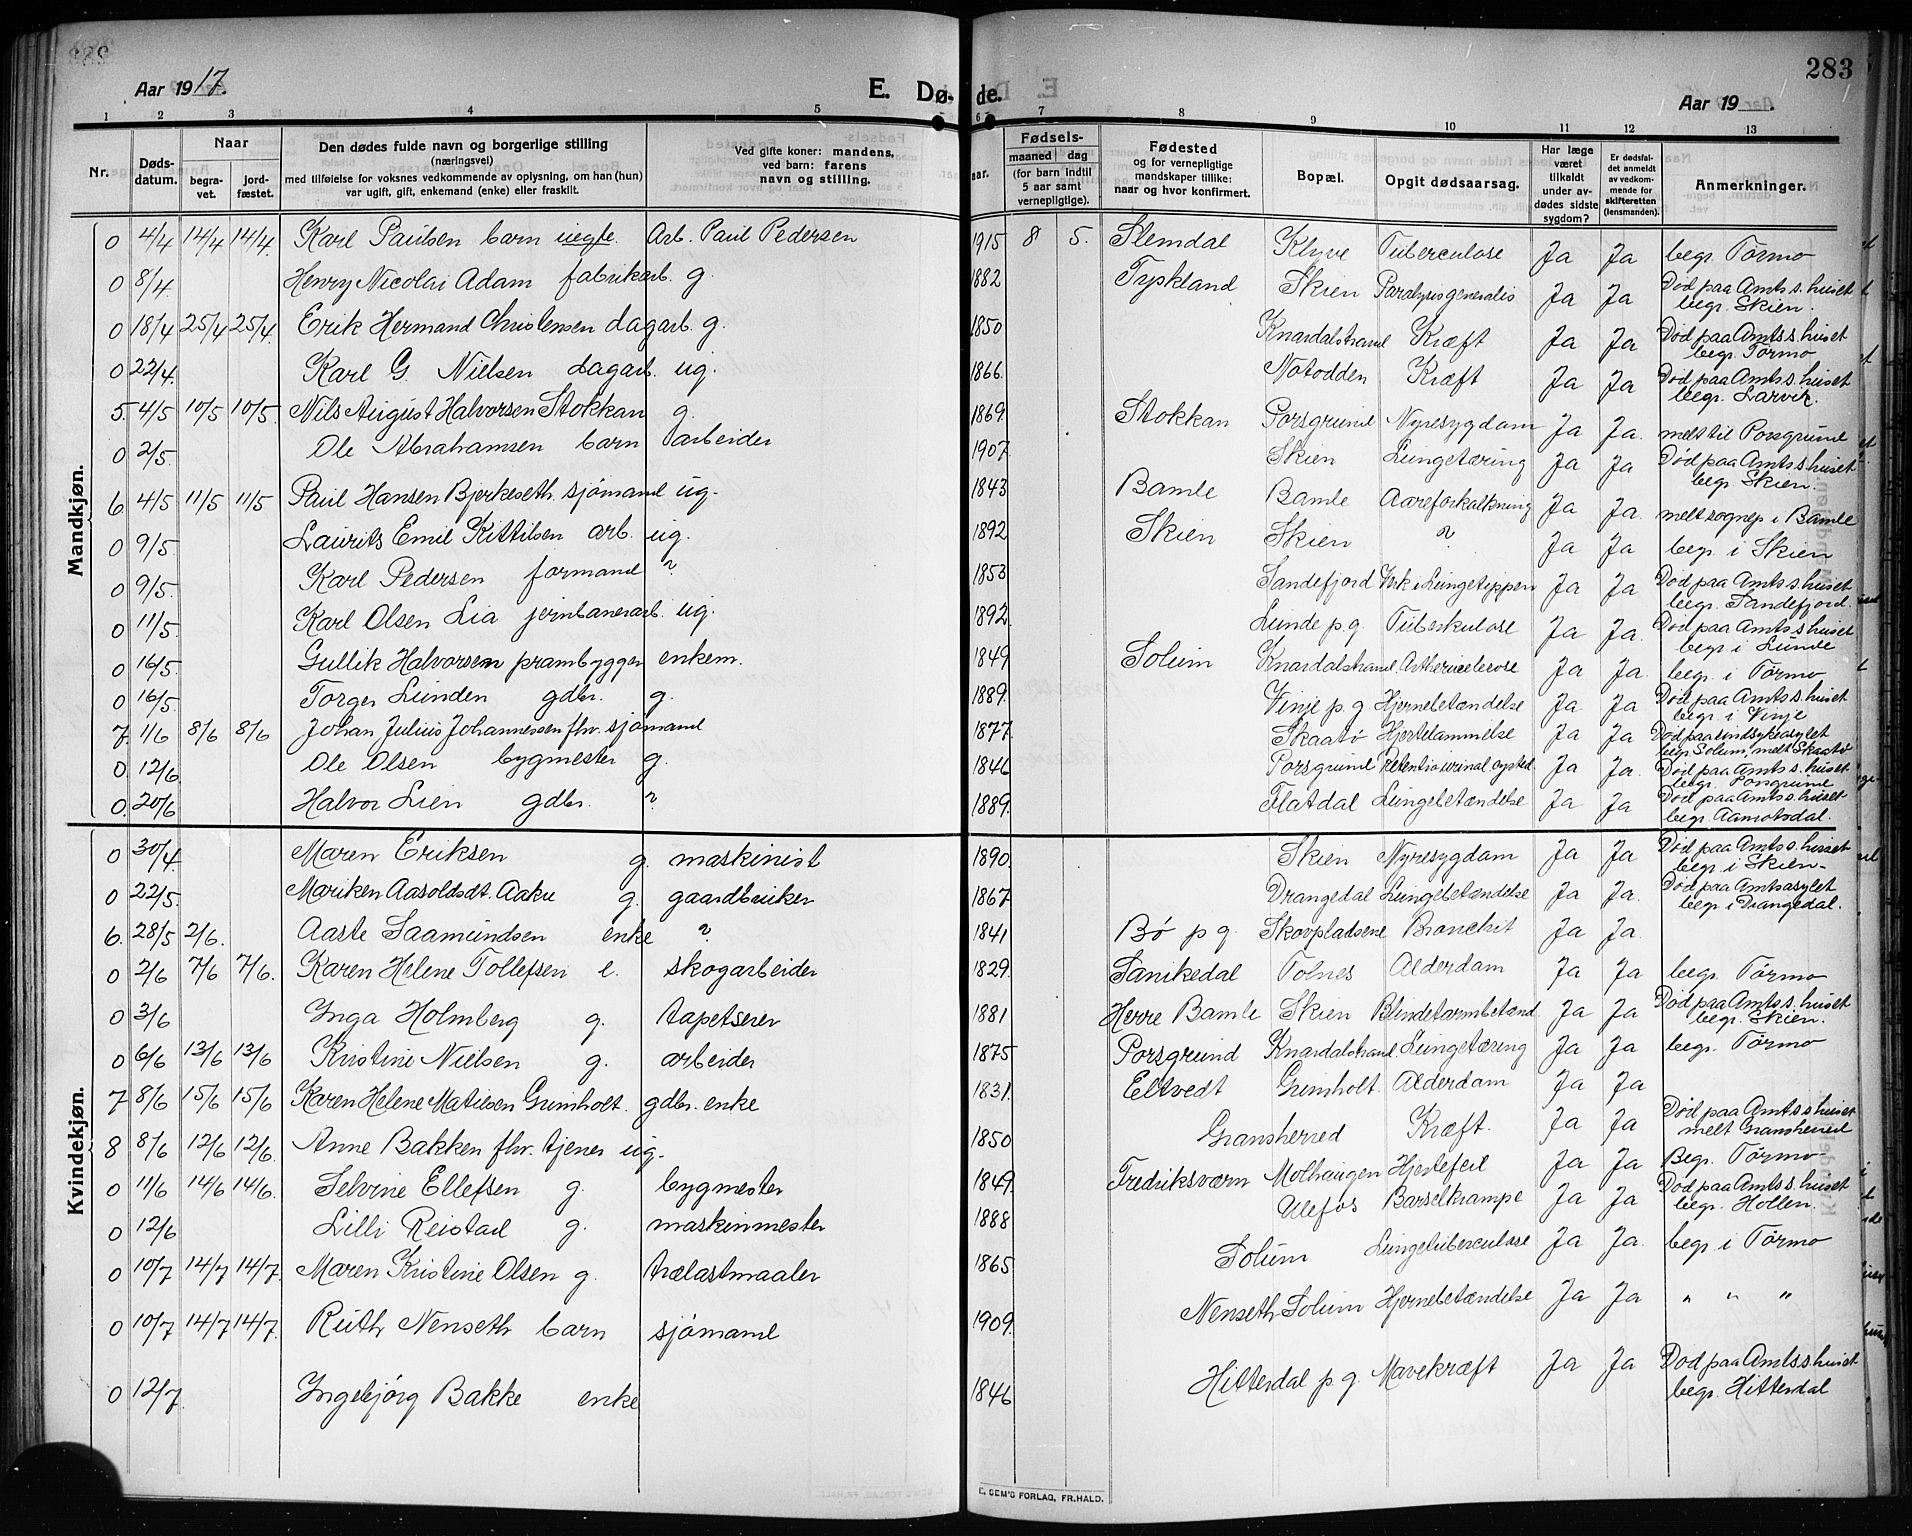 Aar 1917. E. Dø- de. Aar 19 . 283
1 2 3 4 5 6 7 8 9 10 11 12 13
Nr. Døds-datum. Naar begra-vet. jord-fæstet. Den dødes fulde navn og borgerlige stilling (næringsvei) med tilføielse for voksnes vedkommende av oplysning, om han (hun) var ugift, gift, enkemand (enke) eller fraskilt. Ved gifte koner: mandens, ved barn: farens navn og stilling. aar. Fødsels- maaned dag (for barn indtil 5 aar samt vernepligtige). Fødested og for vernepligtige mandskaper tillike: naar og hvor konfirmert. Bopæl. Opgit dødsaarsag. Har læge været tilkaldt under av-dødes sidste sygdom? Er dødsfal-det anmeldt av vedkom-mende for skifteretten (lensmanden). Anmerkninger.
Mandkjøn.
0 4/4 14/4 14/4. Karl Paulsen barn uegte. Arb. Paul Pedersen 1915 8 5. Slemdal Klyve Tuberculose Ja Ja begr. Tórmo
0 8/4. Henry Nicolai Adam fabrikarb. g. 1882 Tyskland Skien Paralysis generalis Ja Ja Död paa Amts s. huset begr. Skien.
0 18/4 25/4 25/4. Erik Hermand Christensen dagarb. g. 1850 Knardalstrand Kræft Ja Ja Död paa Amts s. huset begr. Tórmo
0 22/4. Karl G. Nielsen dagarb. ug. 1866. Notodden Kræft Ja Ja Död paa Amts s. huset begr. Larvik.
5. 4/5 10/5 10/5. Nils August Halvorsen Stokkan g. 1869. Stokkan Porsgrund Nyresygdom Ja Ja. melt til Porsgrund
0 2/5. Ole Abrahamsen barn arbeider 1907. Skien Lungetæring Ja Ja. Død paa Amts s huset begr. Skien.
6. 4/5 11/5 11/5 Paul Hansen Bjerkeseth sjómand ug. 1843 Bamle Bamle Aareforkalkning Ja Ja. melt sognep i Bamle
0 9/5 Laurits Emil Kittilsen arb. ug. 1892 Skien Skien ? Ja Ja begr i Skien
0 9/5. Karl Pedersen formand ? 1853 Sandefjord Vesk i Lungetippen Ja Ja Död paa Amts s huset begr. Sandefjord.
0 11/5. Karl Olsen Lia jernbanearb. ug. 1892. Lunde p. g Tuberkulose Ja Ja. Död paa Amts s huset begr i Lunde
0 16/5. Gullik Halvorsen prambygger enkem. 1849 Solum Knardalstrand. Ja Ja. begr. i Tórmo
0 16/5. Torger Lunden gdbr. g. 1889. Vinje p. g Hjernebetændelse Ja Ja Död paa Amts s. huset begr i Vinje
7. 1/6 8/6 8/6 Johan Julius Johannessen fhv. sjómand 1877 Skaató Hjertelammelse Ja Ja Död paa sindsykeasylet begr Solum, melt Skaató
0. 12/6 Ole Olsen bygmester g. 1846 Porsgrund Ja Ja Död paa Amts s. huset begr. Porsgrund
0. 20/6 Halvor Lien gdbr. ? 1889. Flatdal Lungebetændelse Ja Ja Död paa Amts s. huset begr. Aamotsdal.
Kvindekjøn.
0 30/4. Maren Eriksen g. maskinist 1890. Skien Nyresygdom Ja Ja Död paa Amts s. huset begr. i Skien-
0 22/5. Mariken Aasoldsdt. Aakre g. gaardbruker 1867 Drangedal Lungebetændelse Ja Ja. Död paa Amtsasylet begr. i Drangedal.
6. 28/5 2/6. Aaste Saamundsen enke ? 1841 Bó p g. Skovpladsene Bronchit Ja Ja.
0 2/6 7/6 7/6. Karen Helene Tollefsen e. skogarbeider 1829. Sanikedal Tolnes Alderdom Ja Ja begr. Tórmo
0 3/6 Inga Holmberg g. tapetserer 1881 Herre Bamle Skien Blindetarmbetænd. Ja Ja Död paa Amts s. huset begr. Skien.
0 6/6 13/6 13/6 Kristine Nielsen g. arbeider 1875 Porsgrund Knardalstrand. Lungetæring Ja Ja begr. Tórmo
7 8/6 15/6 15/6 Karen Helene Matilsen Grimholt. gdbr. enke 1831. Eltvedt Grimholt. Alderdom Ja Ja
8 8/6 12/6 12/6. Anne Bakken fhv. tjener ug. 1850 Gransherred Kræft. Ja Ja Död paa Amts s huset melt Gransherred
0 11/6 14/6 14/6. Selvine Ellefsen g. bygmester 1849. Fredriksværn Molhaugen Hjertefeil Ja Ja Begr. Tórmo
0 12/6 Lilli Reistad g. maskinmester 1888 Ulefos Barselkrampe Ja Ja Död paa Amts s. huset begr. Hollen.
0 10/7 14/7 14/7. Maren Kristine Olsen g. trælastmaaler 1865 Solum Lungetuberculose Ja Ja. begr i Tórmo
0 10/7 14/7 14/7. Ruth Nenseth barn sjómand 1909. Nenseth Solum Hjernebetændelse Ja Ja " " "
0 12/7. Ingebjórg Bakke enke 1846 Hitterdal p. g. Mavekræft Ja Ja Död paa Amts s. huset begr. Hitterdal
E. SEM'S FORLAG, FR.HALD.